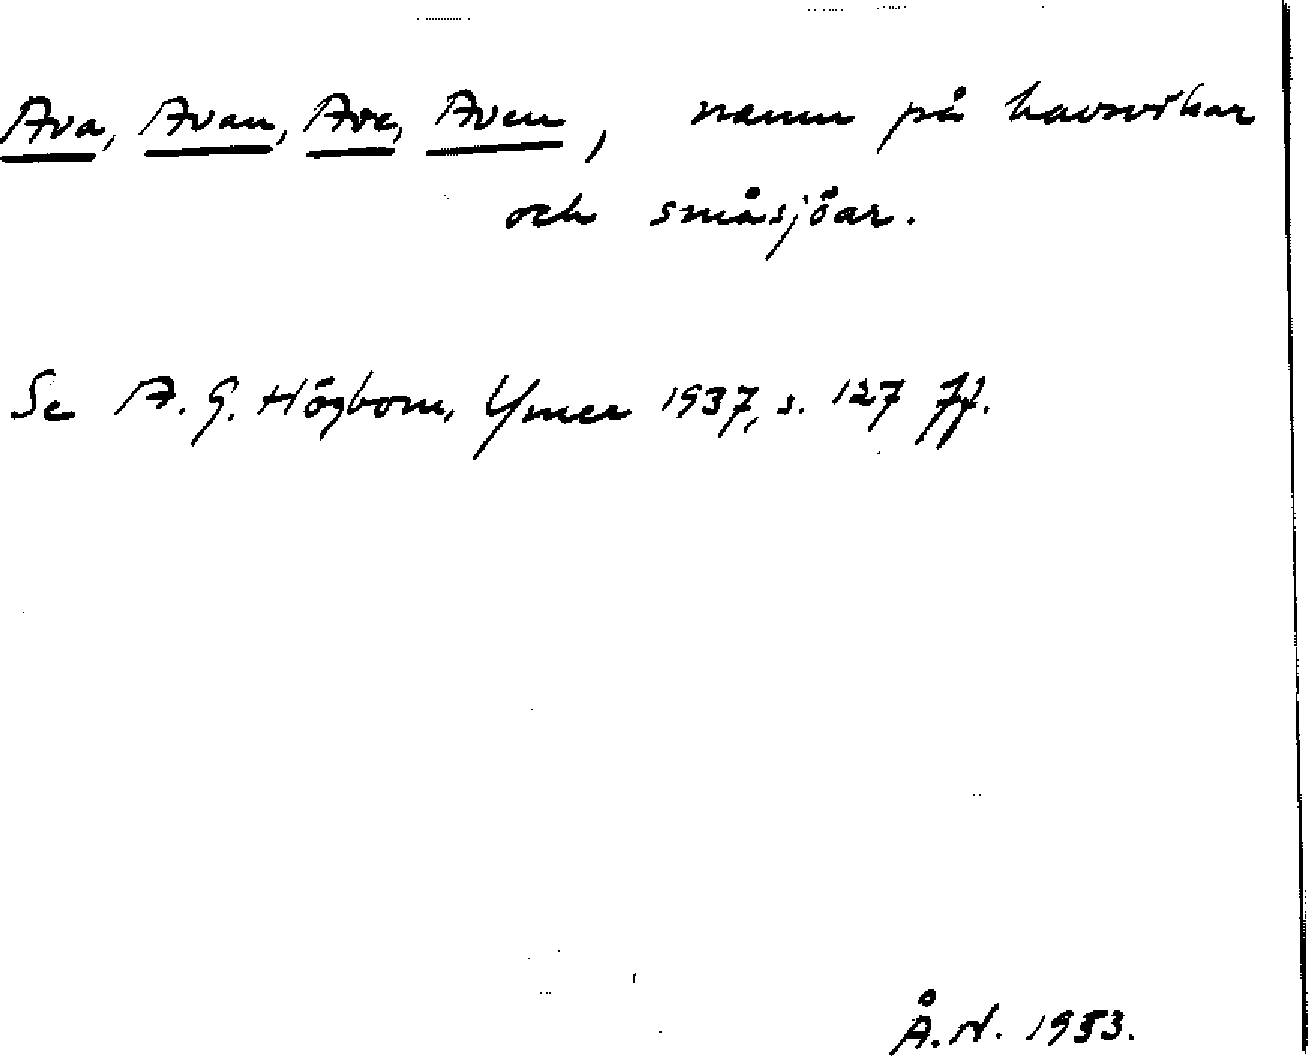 Ava, Avan, Ave, Aven, namn på havsvikar
och småsjöar.
Se A. G. Högbom, Ymer 1937, s. 127 ff.
Å. N. 1953.